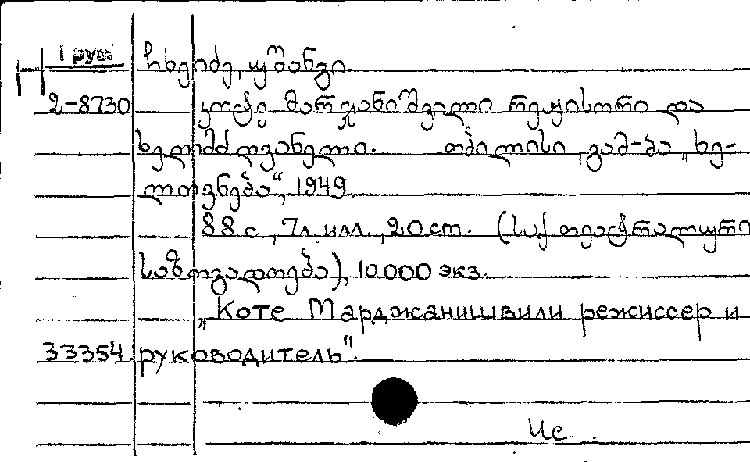 1 руб. ჩხეიძე, უშანგი.
2-8730 კოტე მარჯანიშვილი რეჟისორი და
ხელმძღვანელი. თბილისი, გამ-ბა „ხე-
ლოვნება“, 1949
88 с., 7 л. илл., 20 cm. (საქ. თეატრალური
საზოგადოება), 10.000 экз.
„Коте Марджанишвили режиссер и
33354 руководитель".
Ис